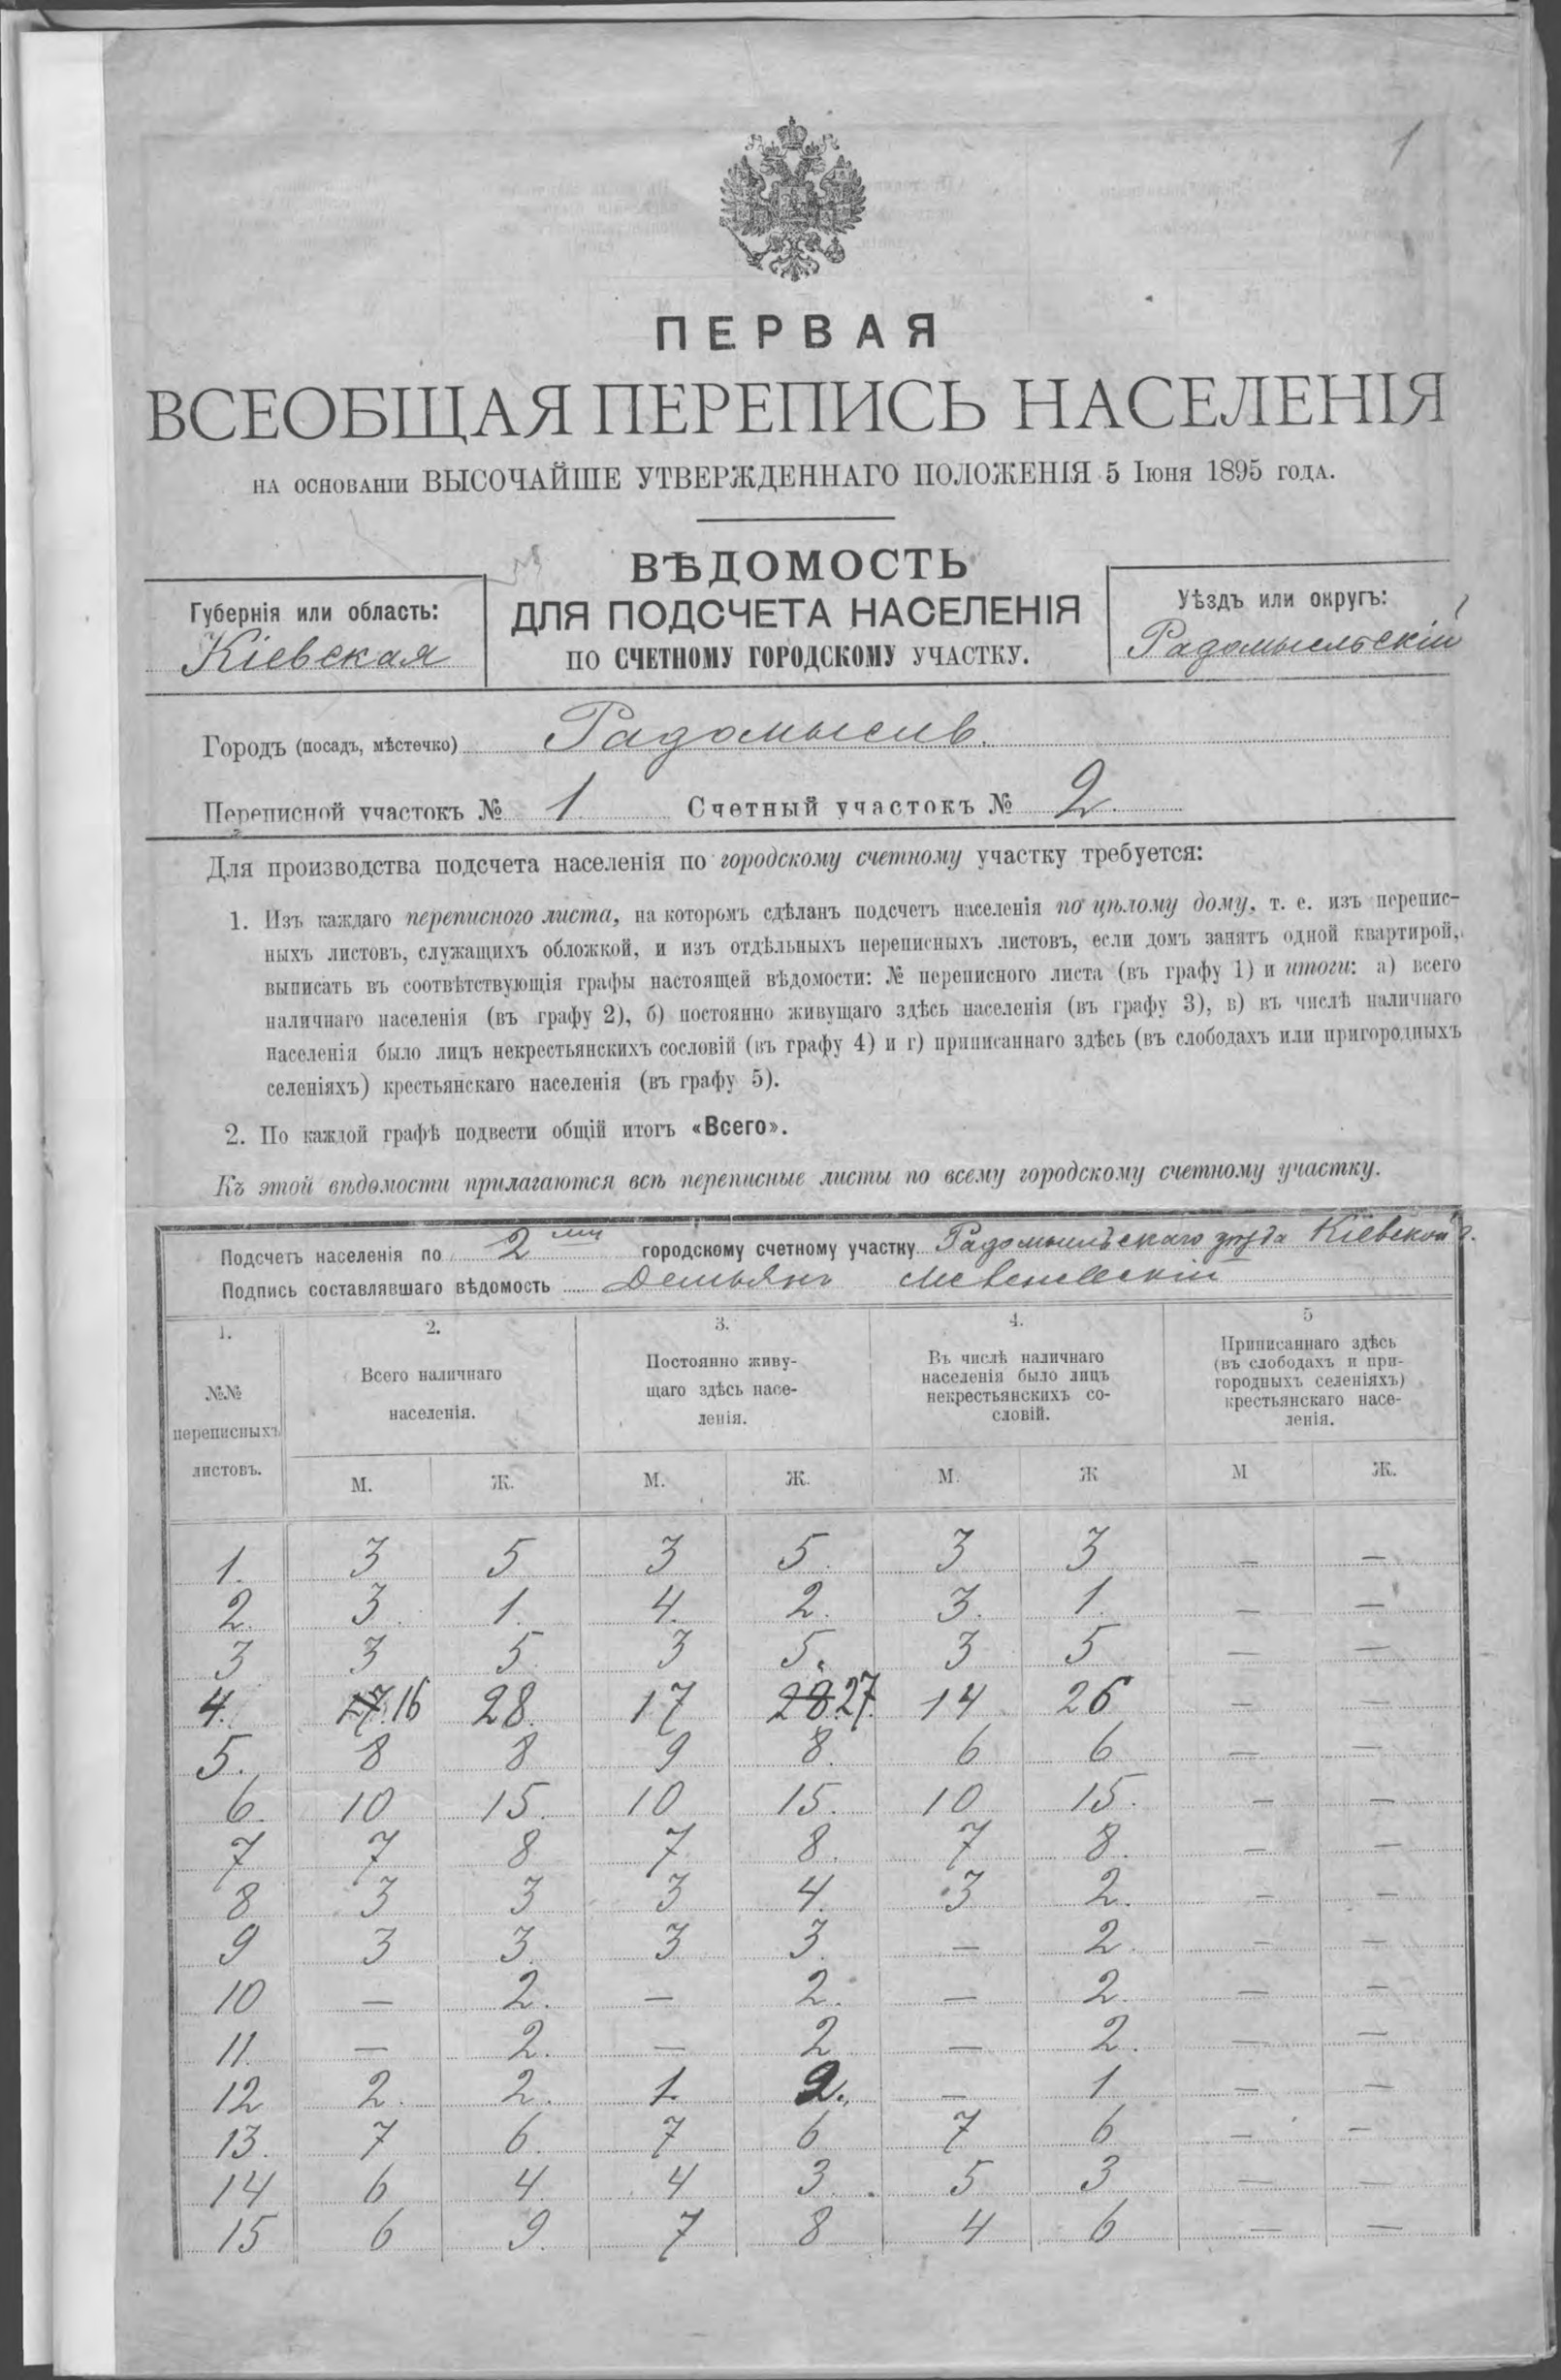 1
ПЕРВАЯ
ВСЕОБЩАЯ ПЕРЕПИСЬ НАСЕЛЕНІЯ
НА ОСНОВАНІИ ВЫСОЧАЙШЕ УТВЕРЖДЕННАГО ПОЛОЖЕНІЯ 5 Іюня 1895 ГОДА.
ВѢДОМОСТЬ
ДЛЯ ПОДСЧЕТА НАСЕЛЕНІЯ
ПО СЧЕТНОМУ ГОРОДСКОМУ УЧАСТКУ.
Губернія или область:
Кіевская
Уѣздъ или округъ:
Радомысльскій
Городъ (посадъ, мѣстечко) Радомысль.
Переписной участокъ № 1 Счетный участокъ № 2.
Для производства подсчета населенія по городскому счетному участку требуется:
1. Изъ каждаго переписного листа, на которомъ сдѣланъ подсчетъ населенія по цѣлому дому, т. е. изъ перепис-
ныхъ листовъ, служащихъ обложкой, и изъ отдѣльныхъ переписныхъ листовъ, если домъ занятъ одной квартирой,
выписать въ соотвѣтствующія графы настоящей вѣдомости: № переписного листа (въ графу 1) и итоги: а) всего
наличнаго населенія (въ графу 2), б) постоянно живущаго здѣсь населенія (въ графу 3), в) въ числѣ наличнаго
населенія было лицъ некрестьянскихъ сословій (въ графу 4) и г) приписаннаго здѣсь (въ слободахъ или пригородныхъ
селеніяхъ) крестьянскаго населенія (въ графу 5).
2. По каждой графѣ подвести общій итогъ «Всего».
Къ этой вѣдомости прилагаются всѣ переписные листы по всему городскому счетному участку.
Подсчетъ населенія по 2 му городскому счетному участку Радомысльскаго уѣзда Кіевской г.
Подпись составлявшаго вѣдомость Демьянъ
1. 2. 3. 4. 5
№№ переписныхъ листовъ.
Всего наличнаго населенія.
Постоянно живу-щаго здѣсь насе-ленія.
Въ числѣ наличнаго населенія было лицъ некрестьянскихъ со-словій.
Приписаннаго здѣсь (въ слободахъ и при-городныхъ селеніяхъ) крестьянскаго насе-ленія.
М. Ж. М. Ж. М. Ж М Ж.
1. 3 5 3 5. 3 3 — —
2. 3. 1. 4. 2. 3. 1. — —
3 3 5. 3 5. 3 5 — —
4. 17. 16 28. 17 28. 27. 14 26 — —
5. 8 8 9 8. 6 6 — —
6. 10 15. 10 15. 10 15. — —
7 7 8 7 8. 7 8. — —
8 3 3 3 4. 3 2. — —
9 3 3. 3 3. — 2. — —
10 — 2. — 2. — 2. — —
11. — 2. — 2 — 2. — —
12 2. 2. 1. 2. — 1 — —
13. 7 6. 7 6 7 6 — —
14 6 4. 4 3. 5 3 — —
15 6 9. 7 8 4 6 — —